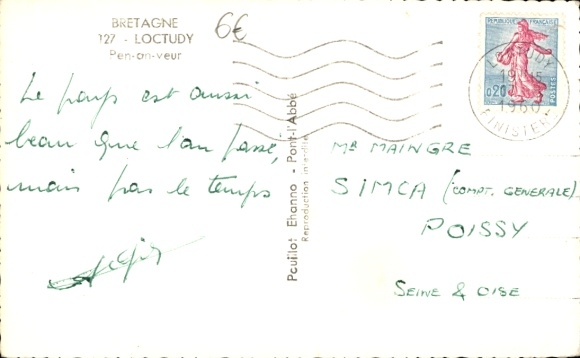 BRETAGNE
127 - LOCTUDY
Pen-an-veur
6€
Le pays est aussi
beau que l'an passé,
mais pas le temps
Pouillot Ehanno - Pont-l'Abbé
Reproduction interdite
REPUBLIQUE FRANÇAISE
0,20
POSTES
LOCTUDY
1960
FINISTERE
MR MAINGRE
SIMCA (COMPT. GENERALE)
POISSY
SEINE & OISE